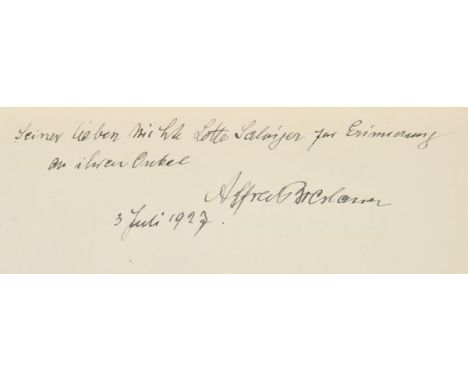 Seiner lieben Nichte Lotte Salviger zur Erinnerung
an ihren Onkel
Alfred Breslauer
3 Juli 1927.